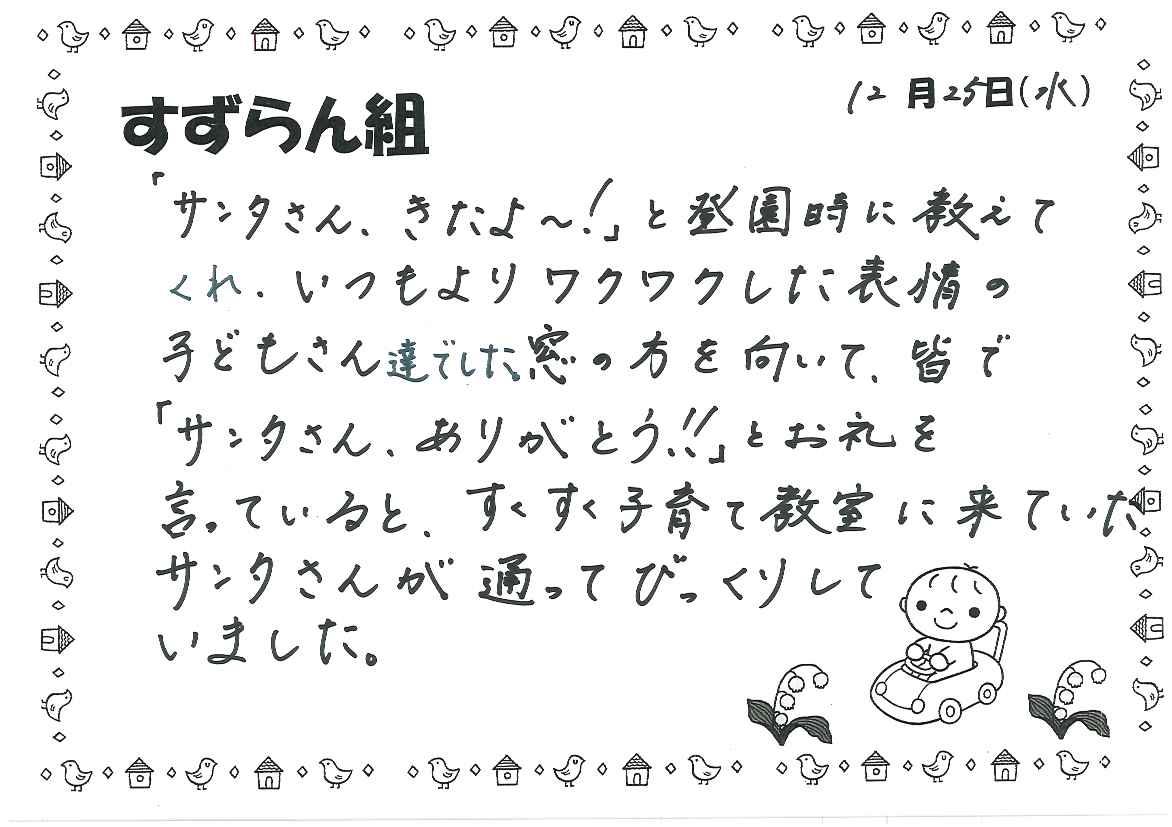 12月25日(水)
すずらん組
「サンタさん、きたよ～!」と登園時に教えて
くれ、いつもよりワクワクした表情の
子どもさん達でした。窓の方を向いて、皆で
「サンタさん、ありがとう!!」とお礼を
言っていると、すくすく子育て教室に来ていた
サンタさんが通ってびっくりして
いました。